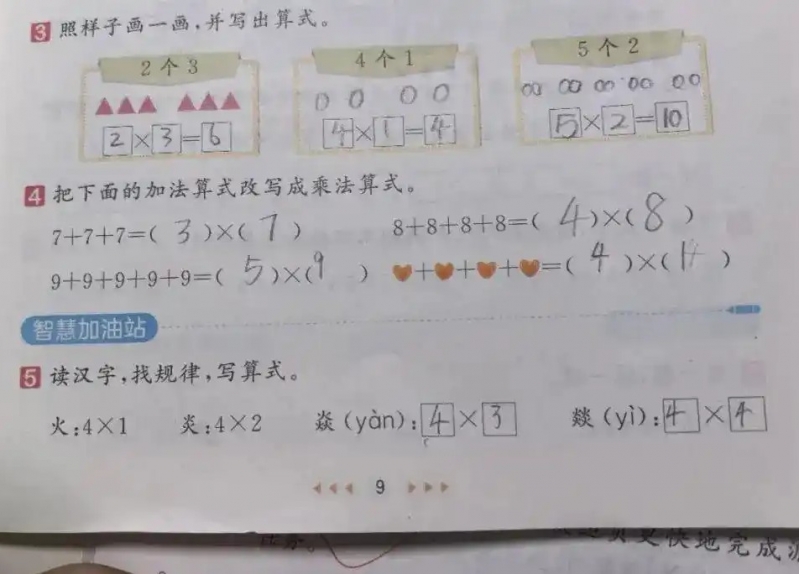 3 照样子画一画,并写出算式。
2个3 4个1 5个2
2×3=6 4×1=4 5×2=10
4 把下面的加法算式改写成乘法算式。
7+7+7=( 3 )×( 7 ) 8+8+8+8=( 4 )×( 8 )
9+9+9+9+9=( 5 )×( 9 ) ♥+♥+♥+♥=( 4 )×( )
智慧加油站
5 读汉字,找规律,写算式。
火:4×1 炎:4×2 焱(yàn):4×3 燚(yì):4×4
9
更快地完成